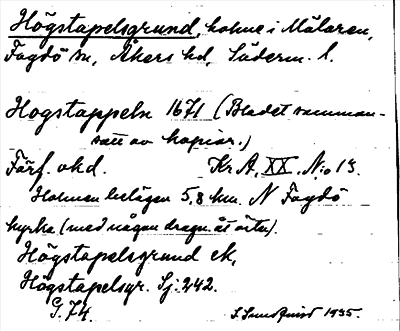 Högstapelsgrund, holme i Mälaren,
Fogdö sn, Åkers hd, Söderm. l.
Hogstappeln 1671 (Bladet samman-
satt av kopior.)
Förf. okd. Kr A, XX. N:o 13.
Holmen belägen 5,8 km. N Fogdö
kyrka (med någon dragn. åt öster).
Högstapelsgrund ek,
Högstapelsgr. Sj: 242.
G. 74. 1935.